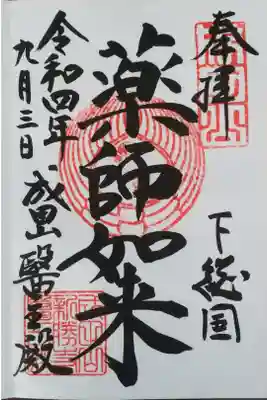 奉拝
下総国
薬師如来
令和四年
九月三日
成田山
醫王殿
新勝寺